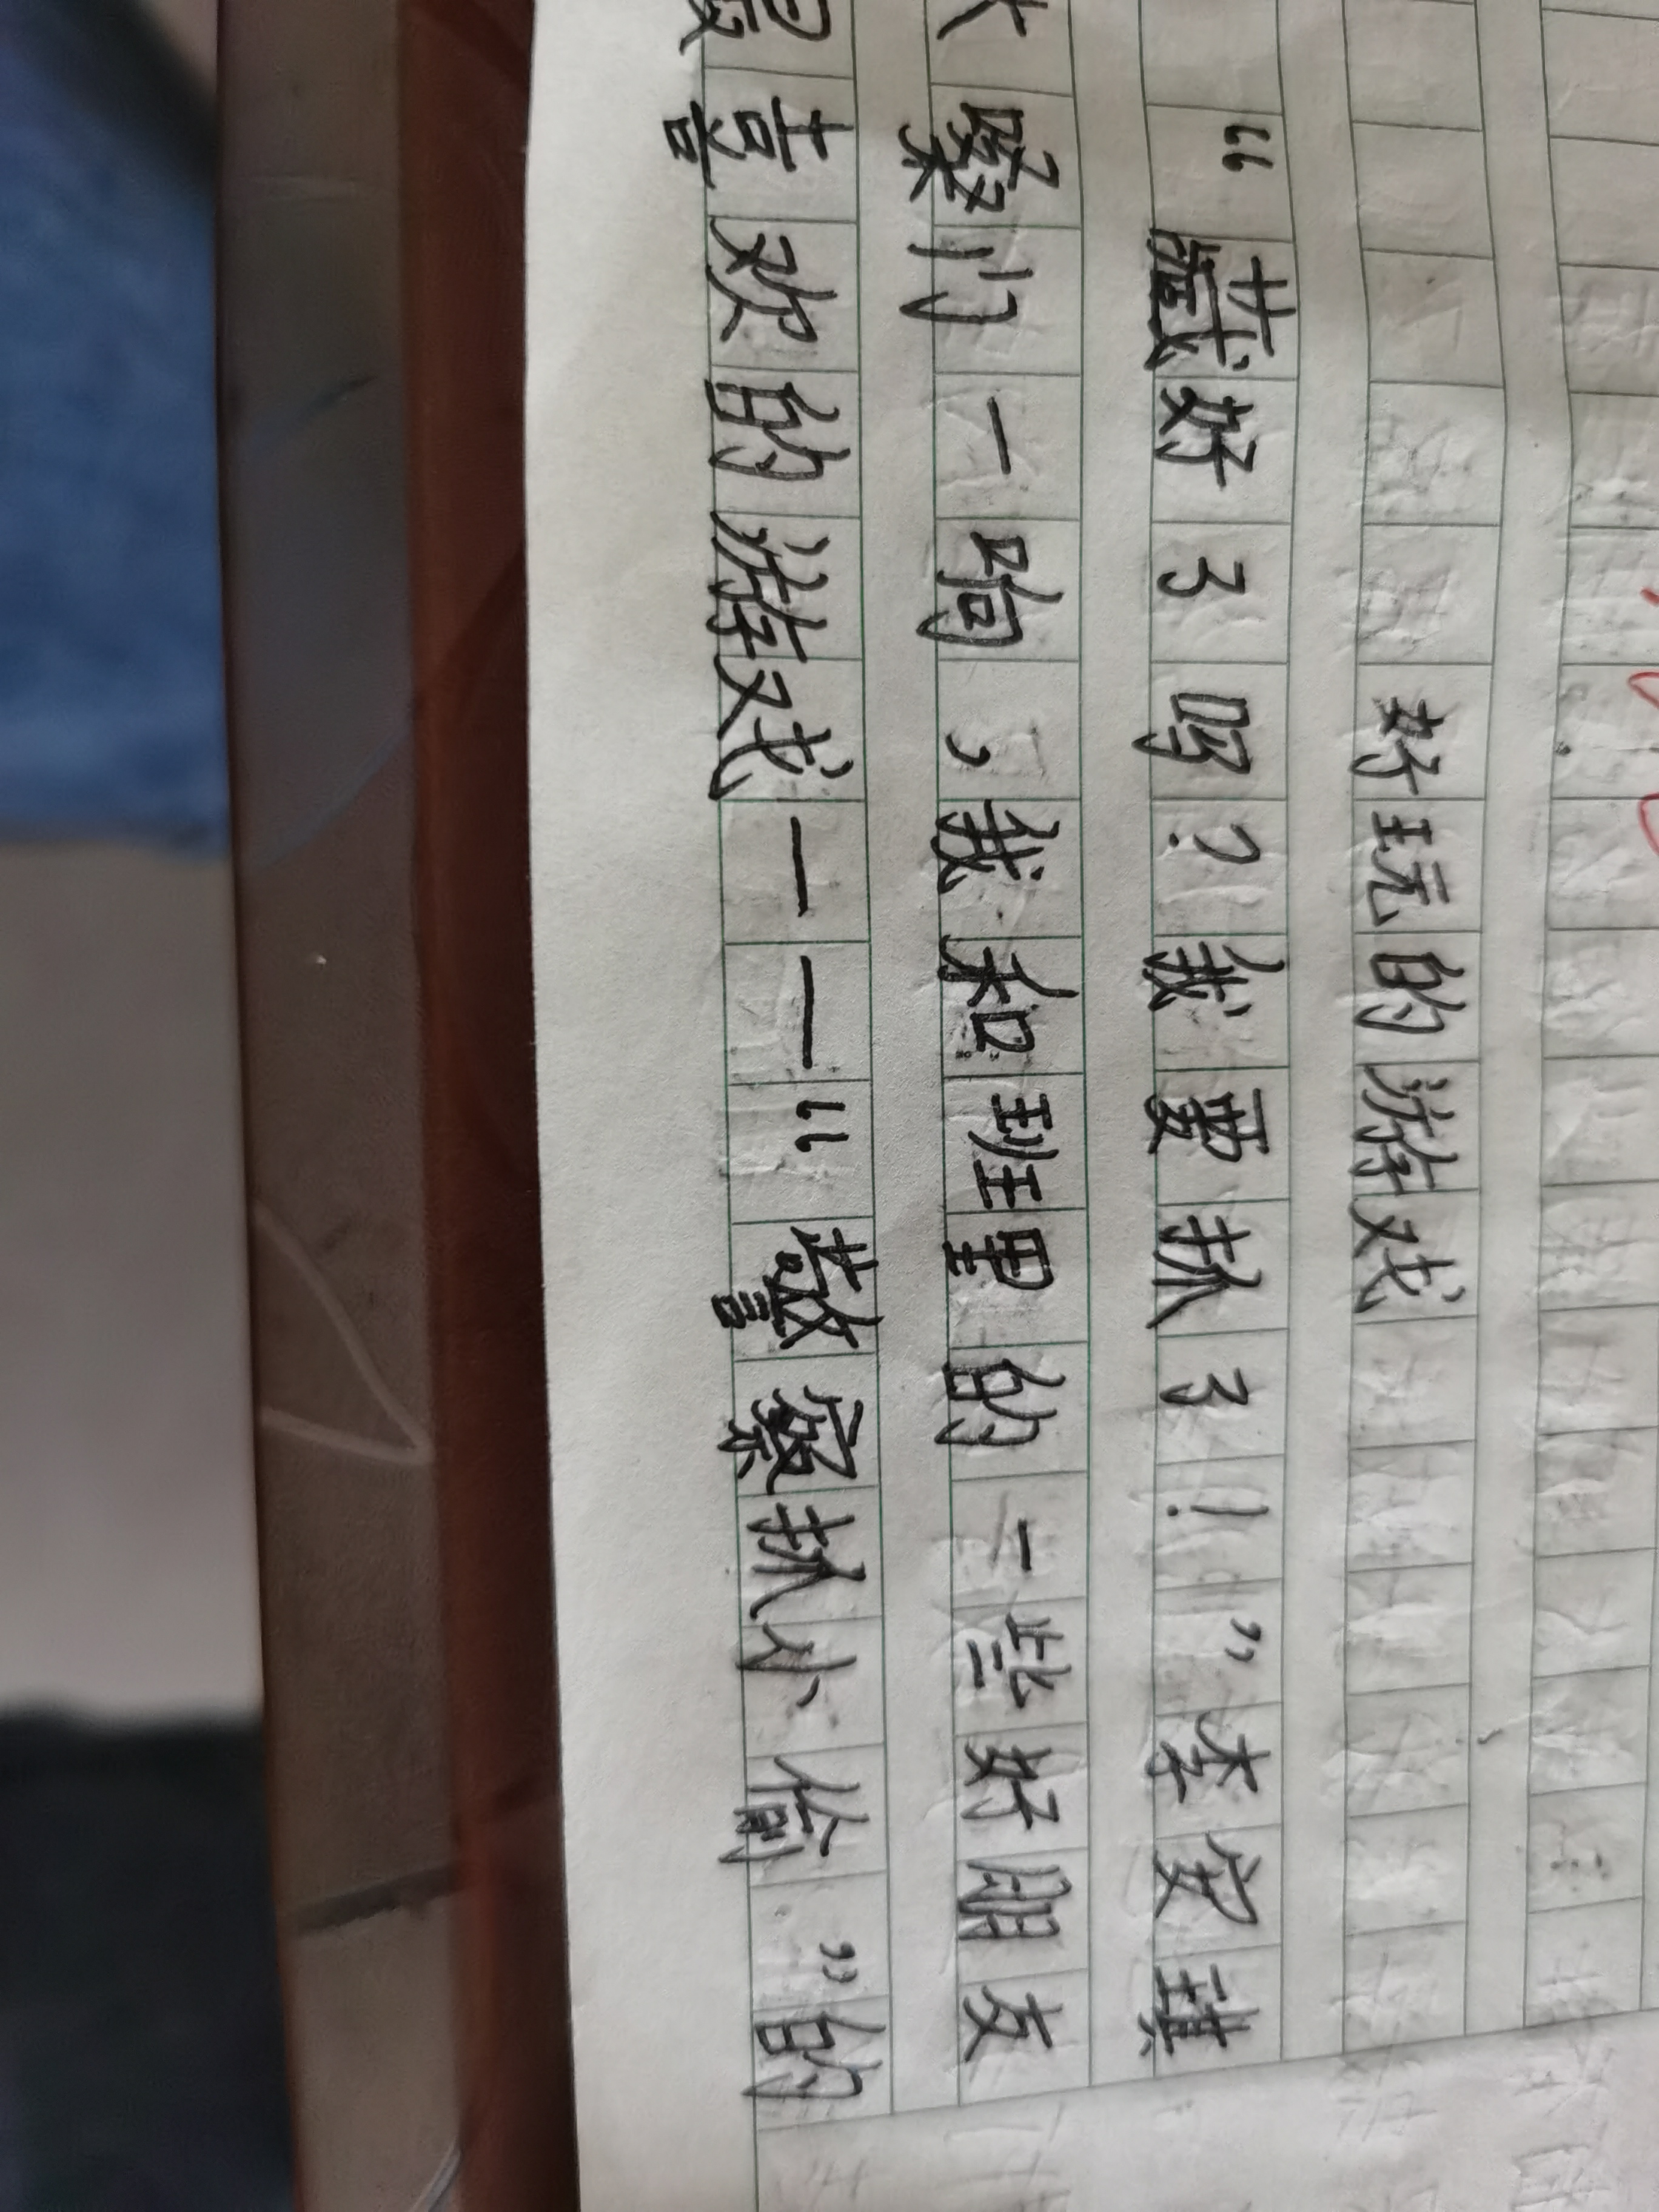 好玩的游戏
“藏好了吗?我要抓了!”李安琪
大嗓门一响,我和班里的一些好朋友
最喜欢的游戏——“警察抓小偷”的